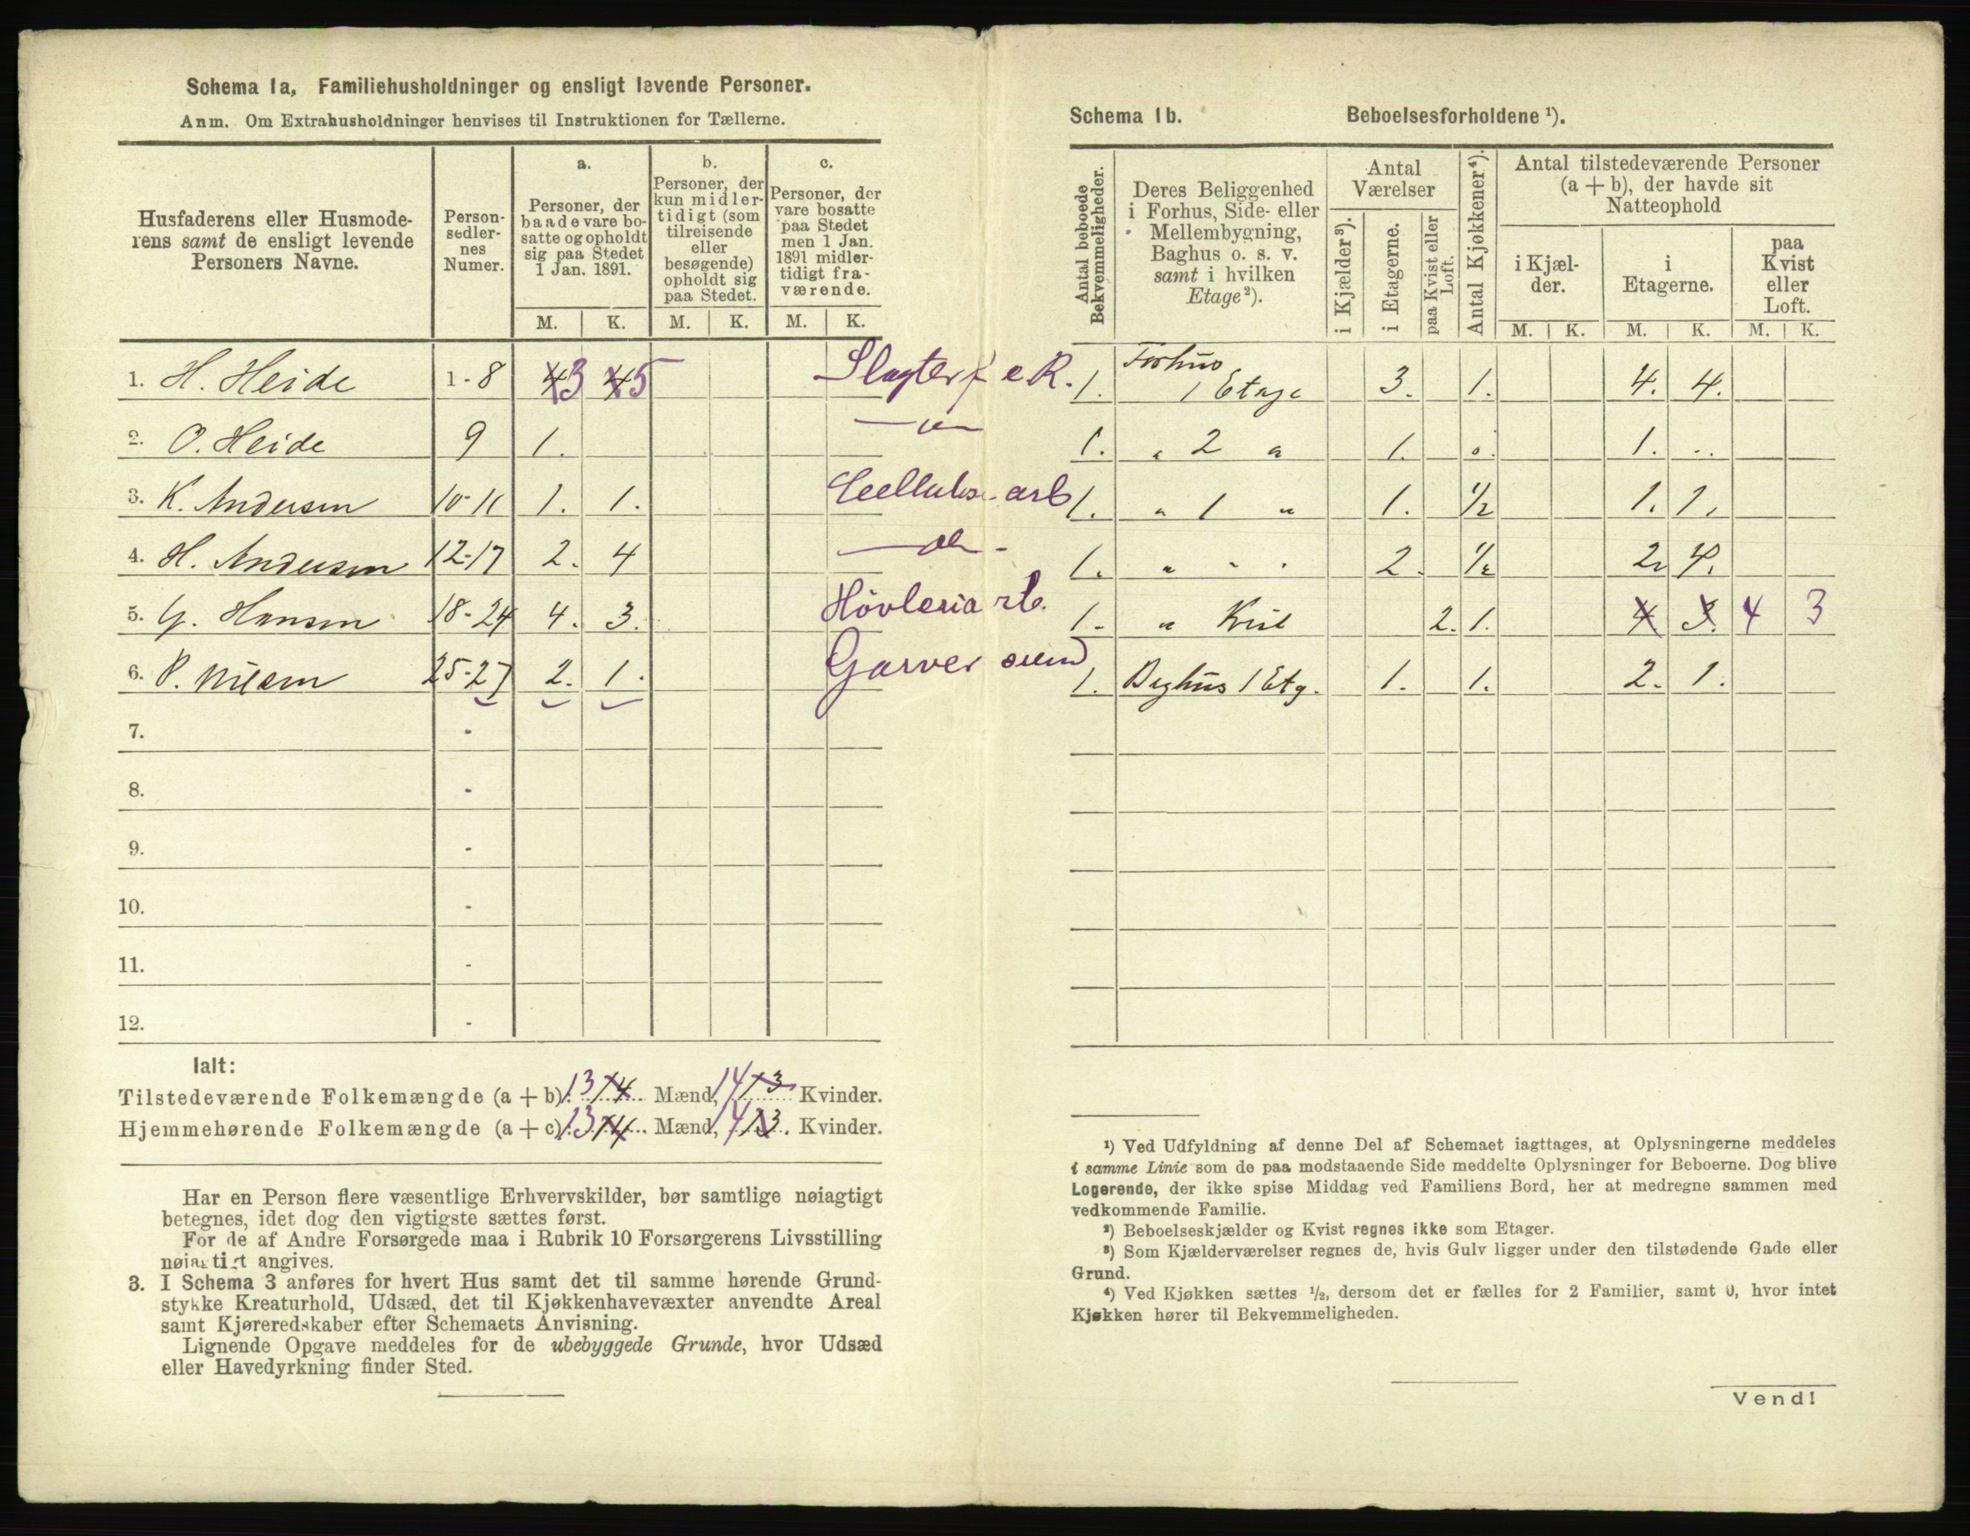 Schema 1a, Familiehusholdninger og ensligt levende Personer.
Anm. Om Extrahusholdninger henvises til Instruktionen for Tællerne.
Husfaderens eller Husmode-
rens samt de ensligt levende
Personers Navne.
Person-
sedler-
nes
Numer.
a.
Personer, der
baade vare bo-
satte og opholdt
sig paa Stedet
1 Jan. 1891.
b.
Personer, der
kun midler-
tidigt (som
tilreisende
eller
besøgende)
opholdt sig
paa Stedet.
c.
Personer, der
vare bosatte
paa Stedet
men 1 Jan.
1891 midler-
tidigt fra-
værende.
M. K. M. K. M. K.
1. H. Heide 1-8 4 3 4 5 Slagter f e R.
2. O. Heide 9 1.
3. K. Andersen 10-11 1. 1. Cellulose arb
4. H. Andersen 12-17 2. 4 — do -
5. G. Hansen 18-24 4. 3. Høvleriarb.
6. P. Nilsen 25-27 2. 1. Garversvend
7. -
8. -
9. -
10. -
11. -
12. -
Ialt:
Tilstedeværende Folkemængde (a + b). 13 14 Mænd, 14 13 Kvinder.
Hjemmehørende Folkemængde (a + c). 13 14 Mænd, 14 13 Kvinder.
Har en Person flere væsentlige Erhvervskilder, bør samtlige nøiagtigt
betegnes, idet dog den vigtigste sættes først.
For de af Andre Forsørgede maa i Rubrik 10 Forsørgerens Livsstilling
nøiagtigt angives.
3. I Schema 3 anføres for hvert Hus samt det til samme hørende Grund-
stykke Kreaturhold, Udsæd, det til Kjøkkenhavevæxter anvendte Areal
samt Kjøreredskaber efter Schemaets Anvisning.
Lignende Opgave meddeles for de ubebyggede Grunde, hvor Udsæd
eller Havedyrkning finder Sted.
Schema 1b. Beboelsesforholdene ¹).
Antal beboede
Bekvemmeligheder.
Deres Beliggenhed
i Forhus, Side- eller
Mellembygning,
Baghus o. s. v.
samt i hvilken
Etage²).
Antal
Værelser
i Kjælder³).
i Etagerne.
paa Kvist eller
Loft.
Antal Kjøkkener⁴).
Antal tilstedeværende Personer
(a + b), der havde sit
Natteophold
i Kjæl-
der.
i
Etagerne.
paa
Kvist
eller
Loft.
M. K. M. K. M. K.
1. Forhus
1 Etage 3. 1. 4. 4.
1. „ 2 „ 1. 0. 1. ..
1. „ 1 „ 1. ½ 1. 1.
1. „ „ „ 2. ½ 2. 4.
1. „ Kvist 2. 1. 4 3. 4 3
1. Baghus 1 Etg. 1. 1. 2. 1.
¹) Ved Udfyldning af denne Del af Schemaet iagttages, at Oplysningerne meddeles
i samme Linie som de paa modstaaende Side meddelte Oplysninger for Beboerne. Dog blive
Logerende, der ikke spise Middag ved Familiens Bord, her at medregne sammen med
vedkommende Familie.
²) Beboelseskjælder og Kvist regnes ikke som Etager.
³) Som Kjælderværelser regnes de, hvis Gulv ligger under den tilstødende Gade eller
Grund.
⁴) Ved Kjøkken sættes ½, dersom det er fælles for 2 Familier, samt 0, hvor intet
Kjøkken hører til Bekvemmeligheden.
Vend!